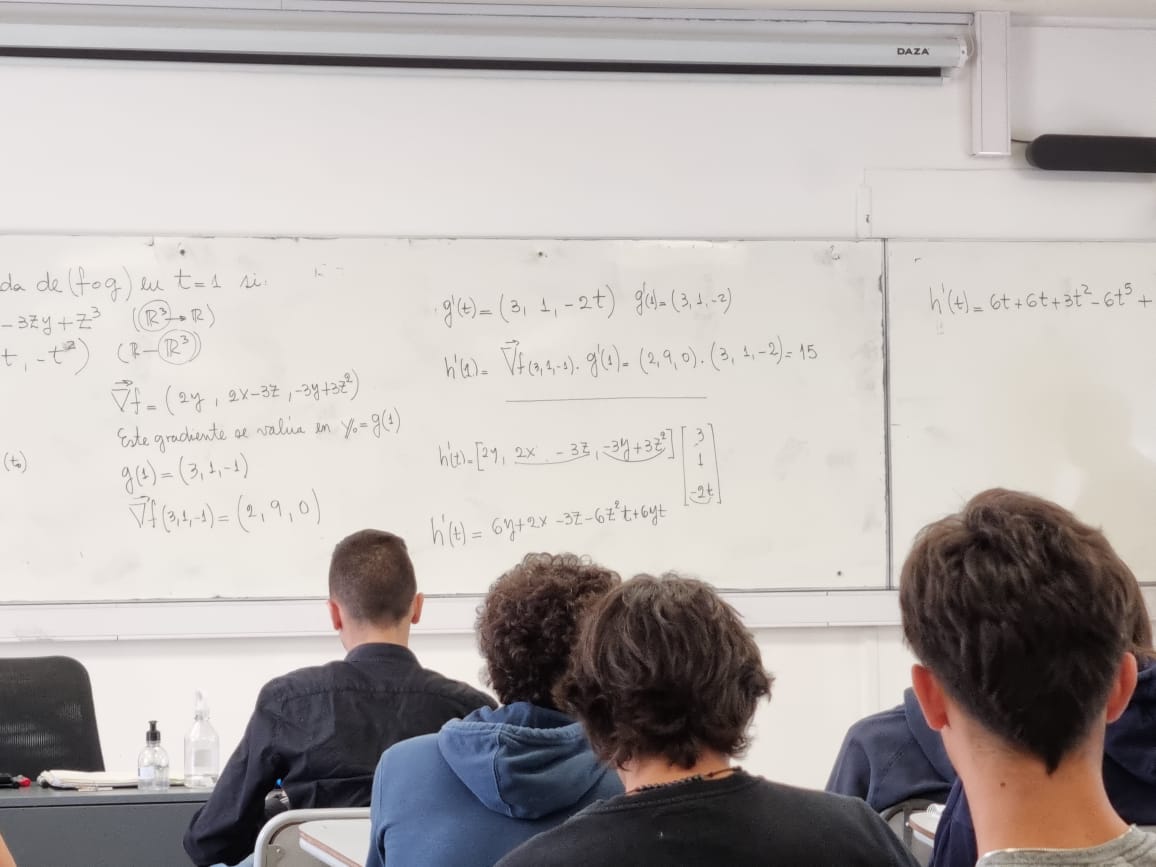 DAZA
da de (fog) en t=1 si:
-3zy+z³ (ℝ³→ℝ)
t, -t²) (ℝ-ℝ³)
∇f = (2y, 2x-3z, -3y+3z²)
Este gradiente se valúa en y₀=g(1)
(t₀)
g(1) = (3,1,-1)
∇f(3,1,-1) = (2,9,0)
g'(t) = (3, 1, -2t) g'(1) = (3,1,-2)
h'(1) = ∇f(3,1,-1) · g'(1) = (2,9,0) · (3, 1, -2) = 15
h'(t) = [2y, 2x - 3z, -3y+3z²] [3
1
-2t]
h'(t) = 6y+2x -3z-6z²t+6yt
h'(t) = 6t+6t+3t²-6t⁵ +